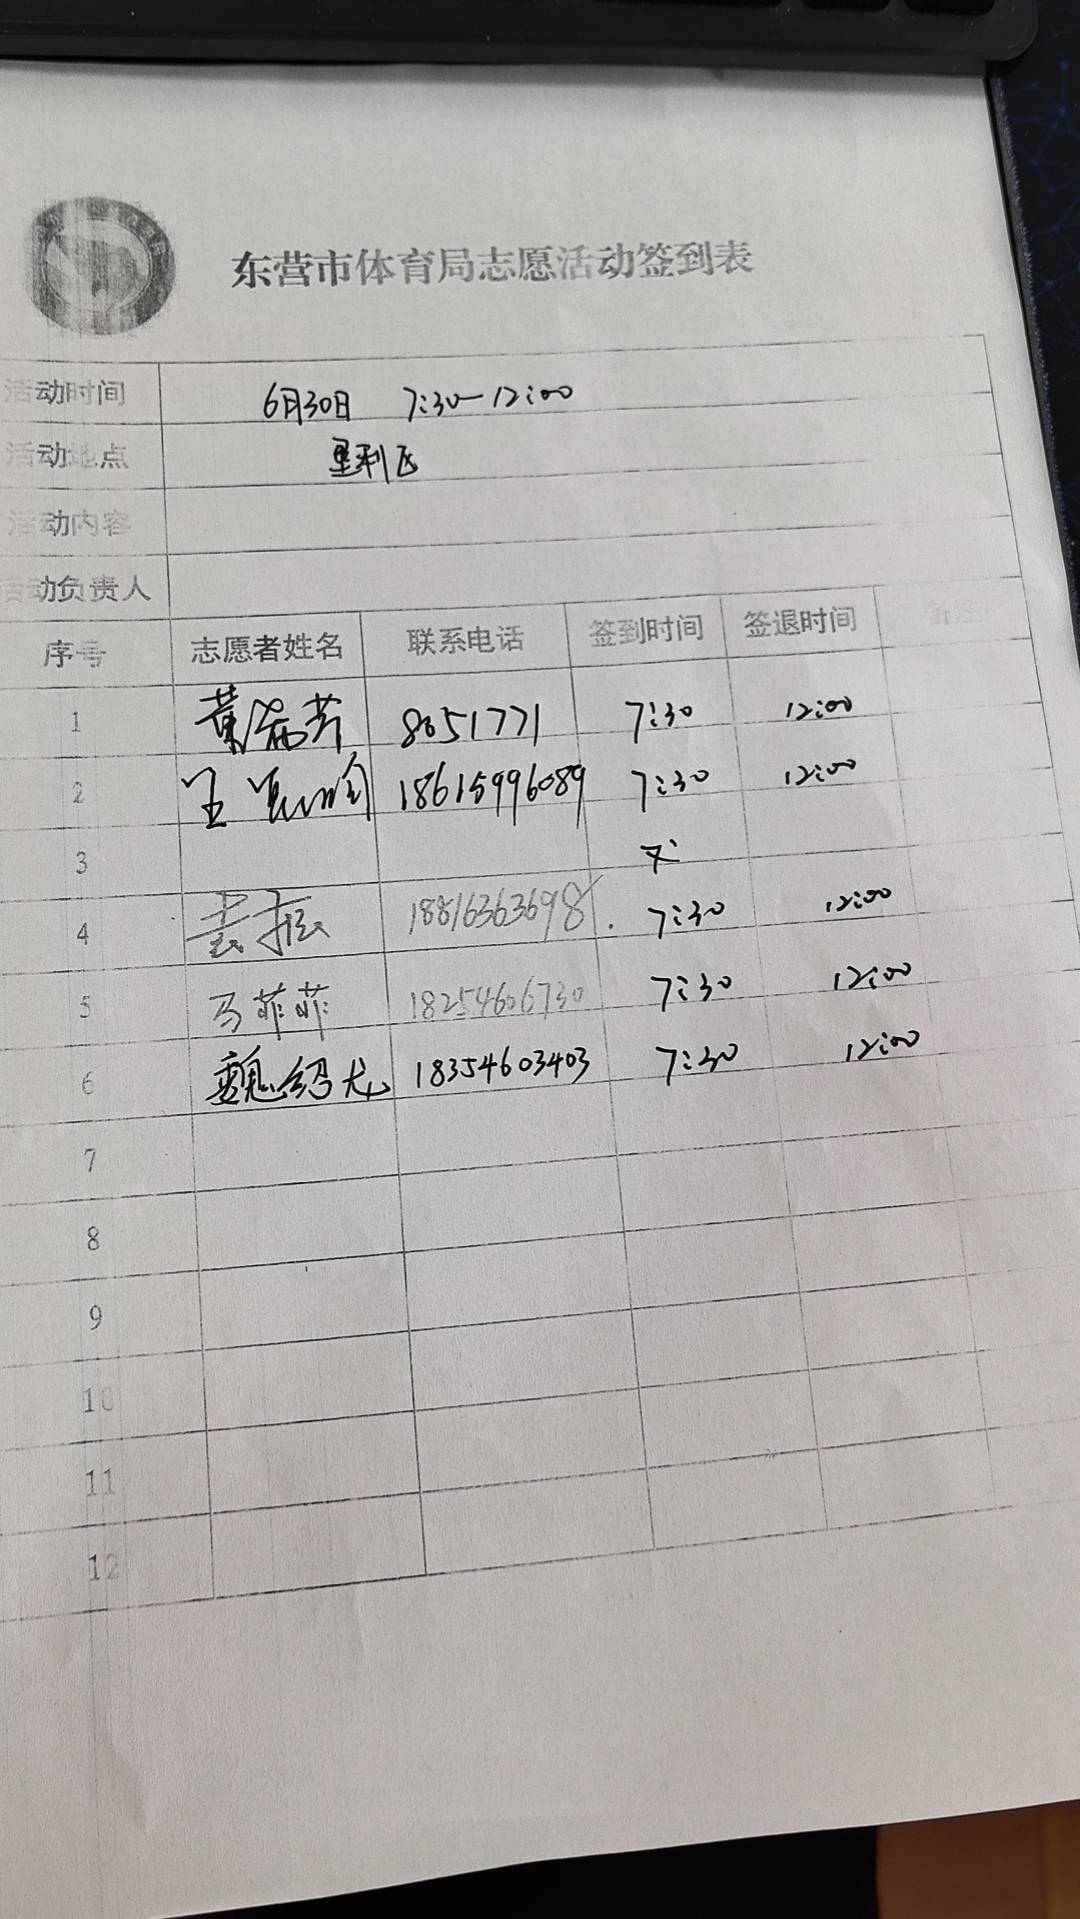 东营市体育局志愿活动签到表
活动时间 6月30日 7:30-12:00
活动地点 垦利区
活动内容
活动负责人
序号 志愿者姓名 联系电话 签到时间 签退时间 备注
1 8051771 7:30 12:00
2 王 18615996089 7:30 12:00
3
4 18816363698 7:30 12:00
5 马菲菲 18254606730 7:30 12:00
6 魏绍龙 18354603403 7:30 12:00
7
8
9
10
11
12